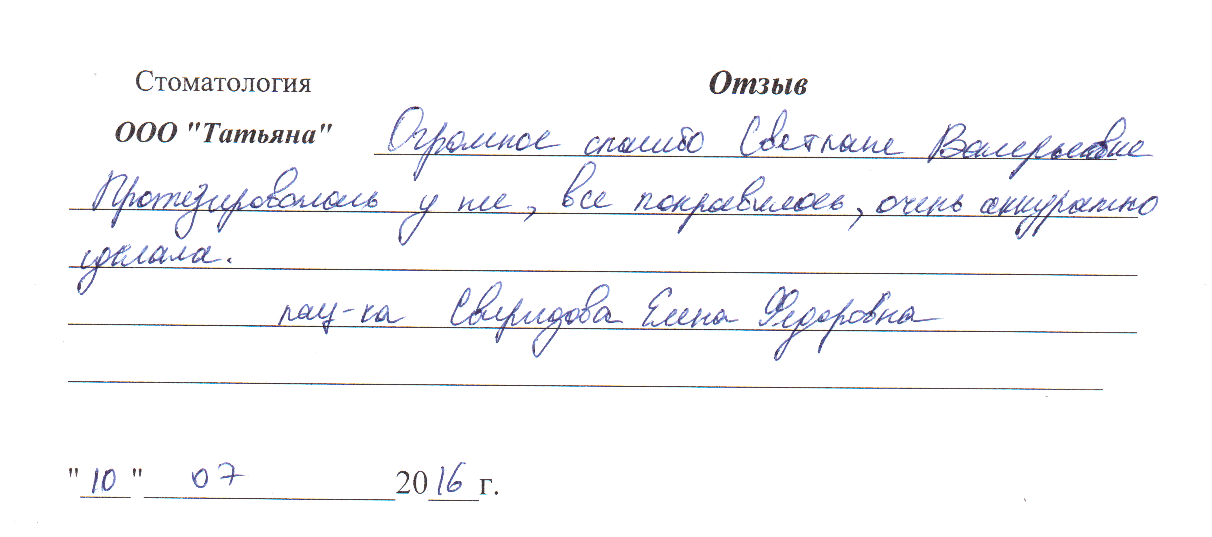 Стоматология
Отзыв
ООО "Татьяна" Огромное спасибо Светлане Валерьевне
Протезировалась у нее, все понравилось, очень аккуратно
сделала.
пац-ка Свиридова Елена Федоровна
"10" 07 2016 г.